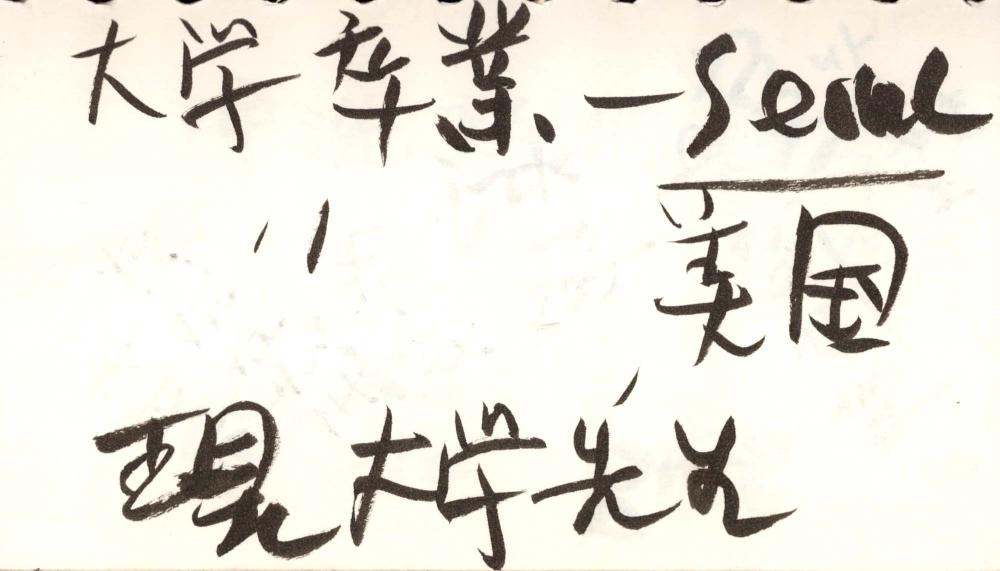 大学卒業 — Seoul
〃 美国
現大学先生